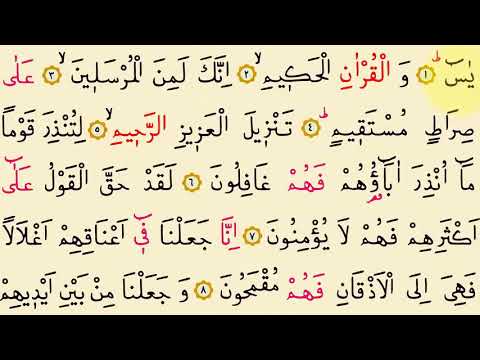 يٰسٓ ۜ ﴿١﴾ وَ الْقُرْاٰنِ الْحَك۪يمِۙ ﴿٢﴾ اِنَّكَ لَمِنَ الْمُرْسَل۪ينَۙ ﴿٣﴾ عَلٰى
صِرَاطٍ مُسْتَق۪يمٍۜ ﴿٤﴾ تَنْز۪يلَ الْعَز۪يزِ الرَّح۪يمِۙ ﴿٥﴾ لِتُنْذِرَ قَوْماً
مَٓا اُنْذِرَ اٰبَٓاؤُ۬هُمْ فَهُمْ غَافِلُونَ ﴿٦﴾ لَقَدْ حَقَّ الْقَوْلُ عَلٰٓى
اَكْثَرِهِمْ فَهُمْ لَا يُؤْمِنُونَ ﴿٧﴾ اِنَّا جَعَلْنَا ف۪ٓي اَعْنَاقِهِمْ اَغْلَالاً
فَهِيَ اِلَى الْاَذْقَانِ فَهُمْ مُقْمَحُونَ ﴿٨﴾ وَ جَعَلْنَا مِنْ بَيْنِ اَيْد۪يهِمْ